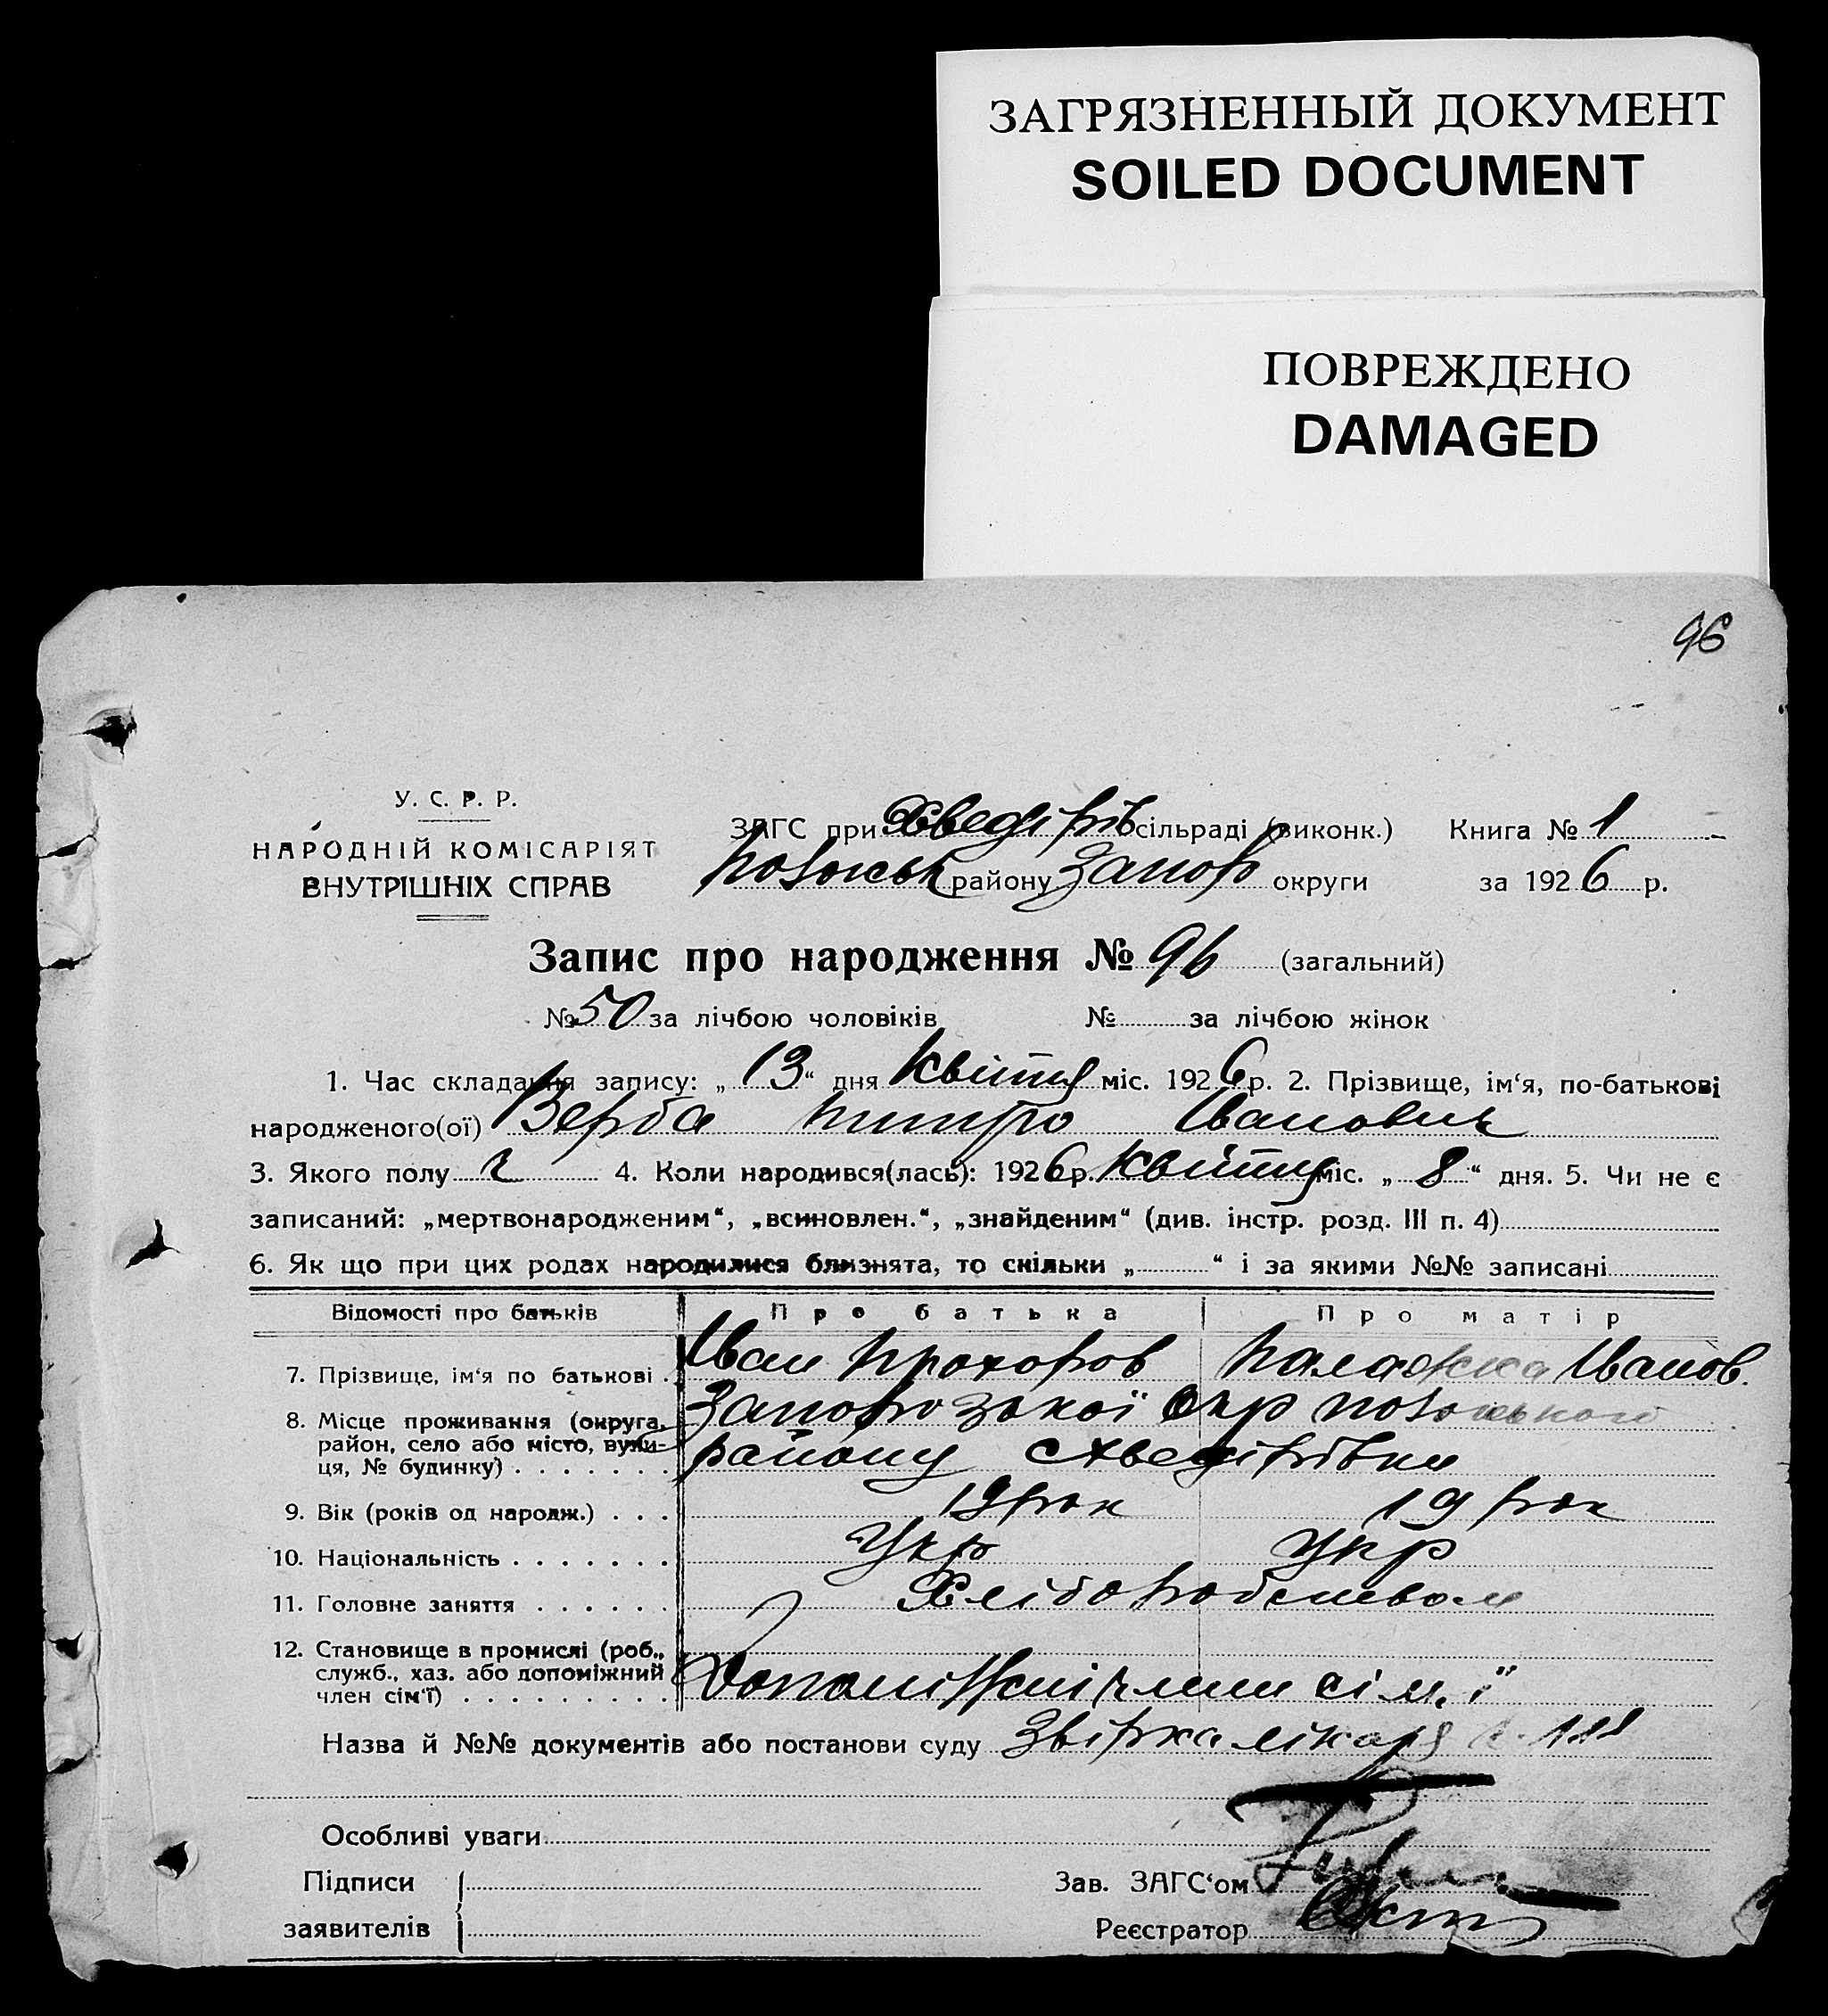 ЗАГРЯЗНЕННЫЙ ДОКУМЕНТ
SOILED DOCUMENT
ПОВРЕЖДЕНО
DAMAGED
96
У. С. Р. Р.
НАРОДНІЙ КОМІСАРІЯТ
ВНУТРІШНІХ СПРАВ
ЗАГС при Хведірів сільраді (виконк.) Книга № 1
району Запор округи за 1926 р.
Запис про народження № 96 (загальний)
№ 50 за лічбою чоловіків № за лічбою жінок
1. Час складання запису: „13“ дня Квітня міс. 1926 р. 2. Прізвище, ім‘я, по-батькові
народженого(ої) Верба Митро Іванович
3. Якого полу ч 4. Коли народився(лась): 1926 р. Квітня міс. „8“ дня. 5. Чи не є
записаний: „мертвонародженим“, „всиновлен.“, „знайденим“ (див. інстр. розд. III п. 4)
6. Як що при цих родах народилися близнята, то скільки „ “ і за якими №№ записані
Відомості про батьків Про батька Про матір
7. Прізвище, ім‘я по батькові . Іван Прохоров Палажка Іванов.
8. Місце проживання (округа, Запорозької Окр
район, село або місто, вули- району с Хведірівки
ця, № будинку) . . . . . . .
9. Вік (років од народж.) . . . 19 рок 19 рок
10. Національність . . . . . . . Укр Укр
11. Головне заняття . . . . . . Хліборобством
12. Становище в промислі (роб.,
служб., хаз. або допоміжний
член сім‘ї) . . . . . . . . . Допоміжні члени сім,ї
Назва й №№ документів або постанови суду лікаря
Особливі уваги
Підписи
заявителів
Зав. ЗАГС‘ом
Реєстратор